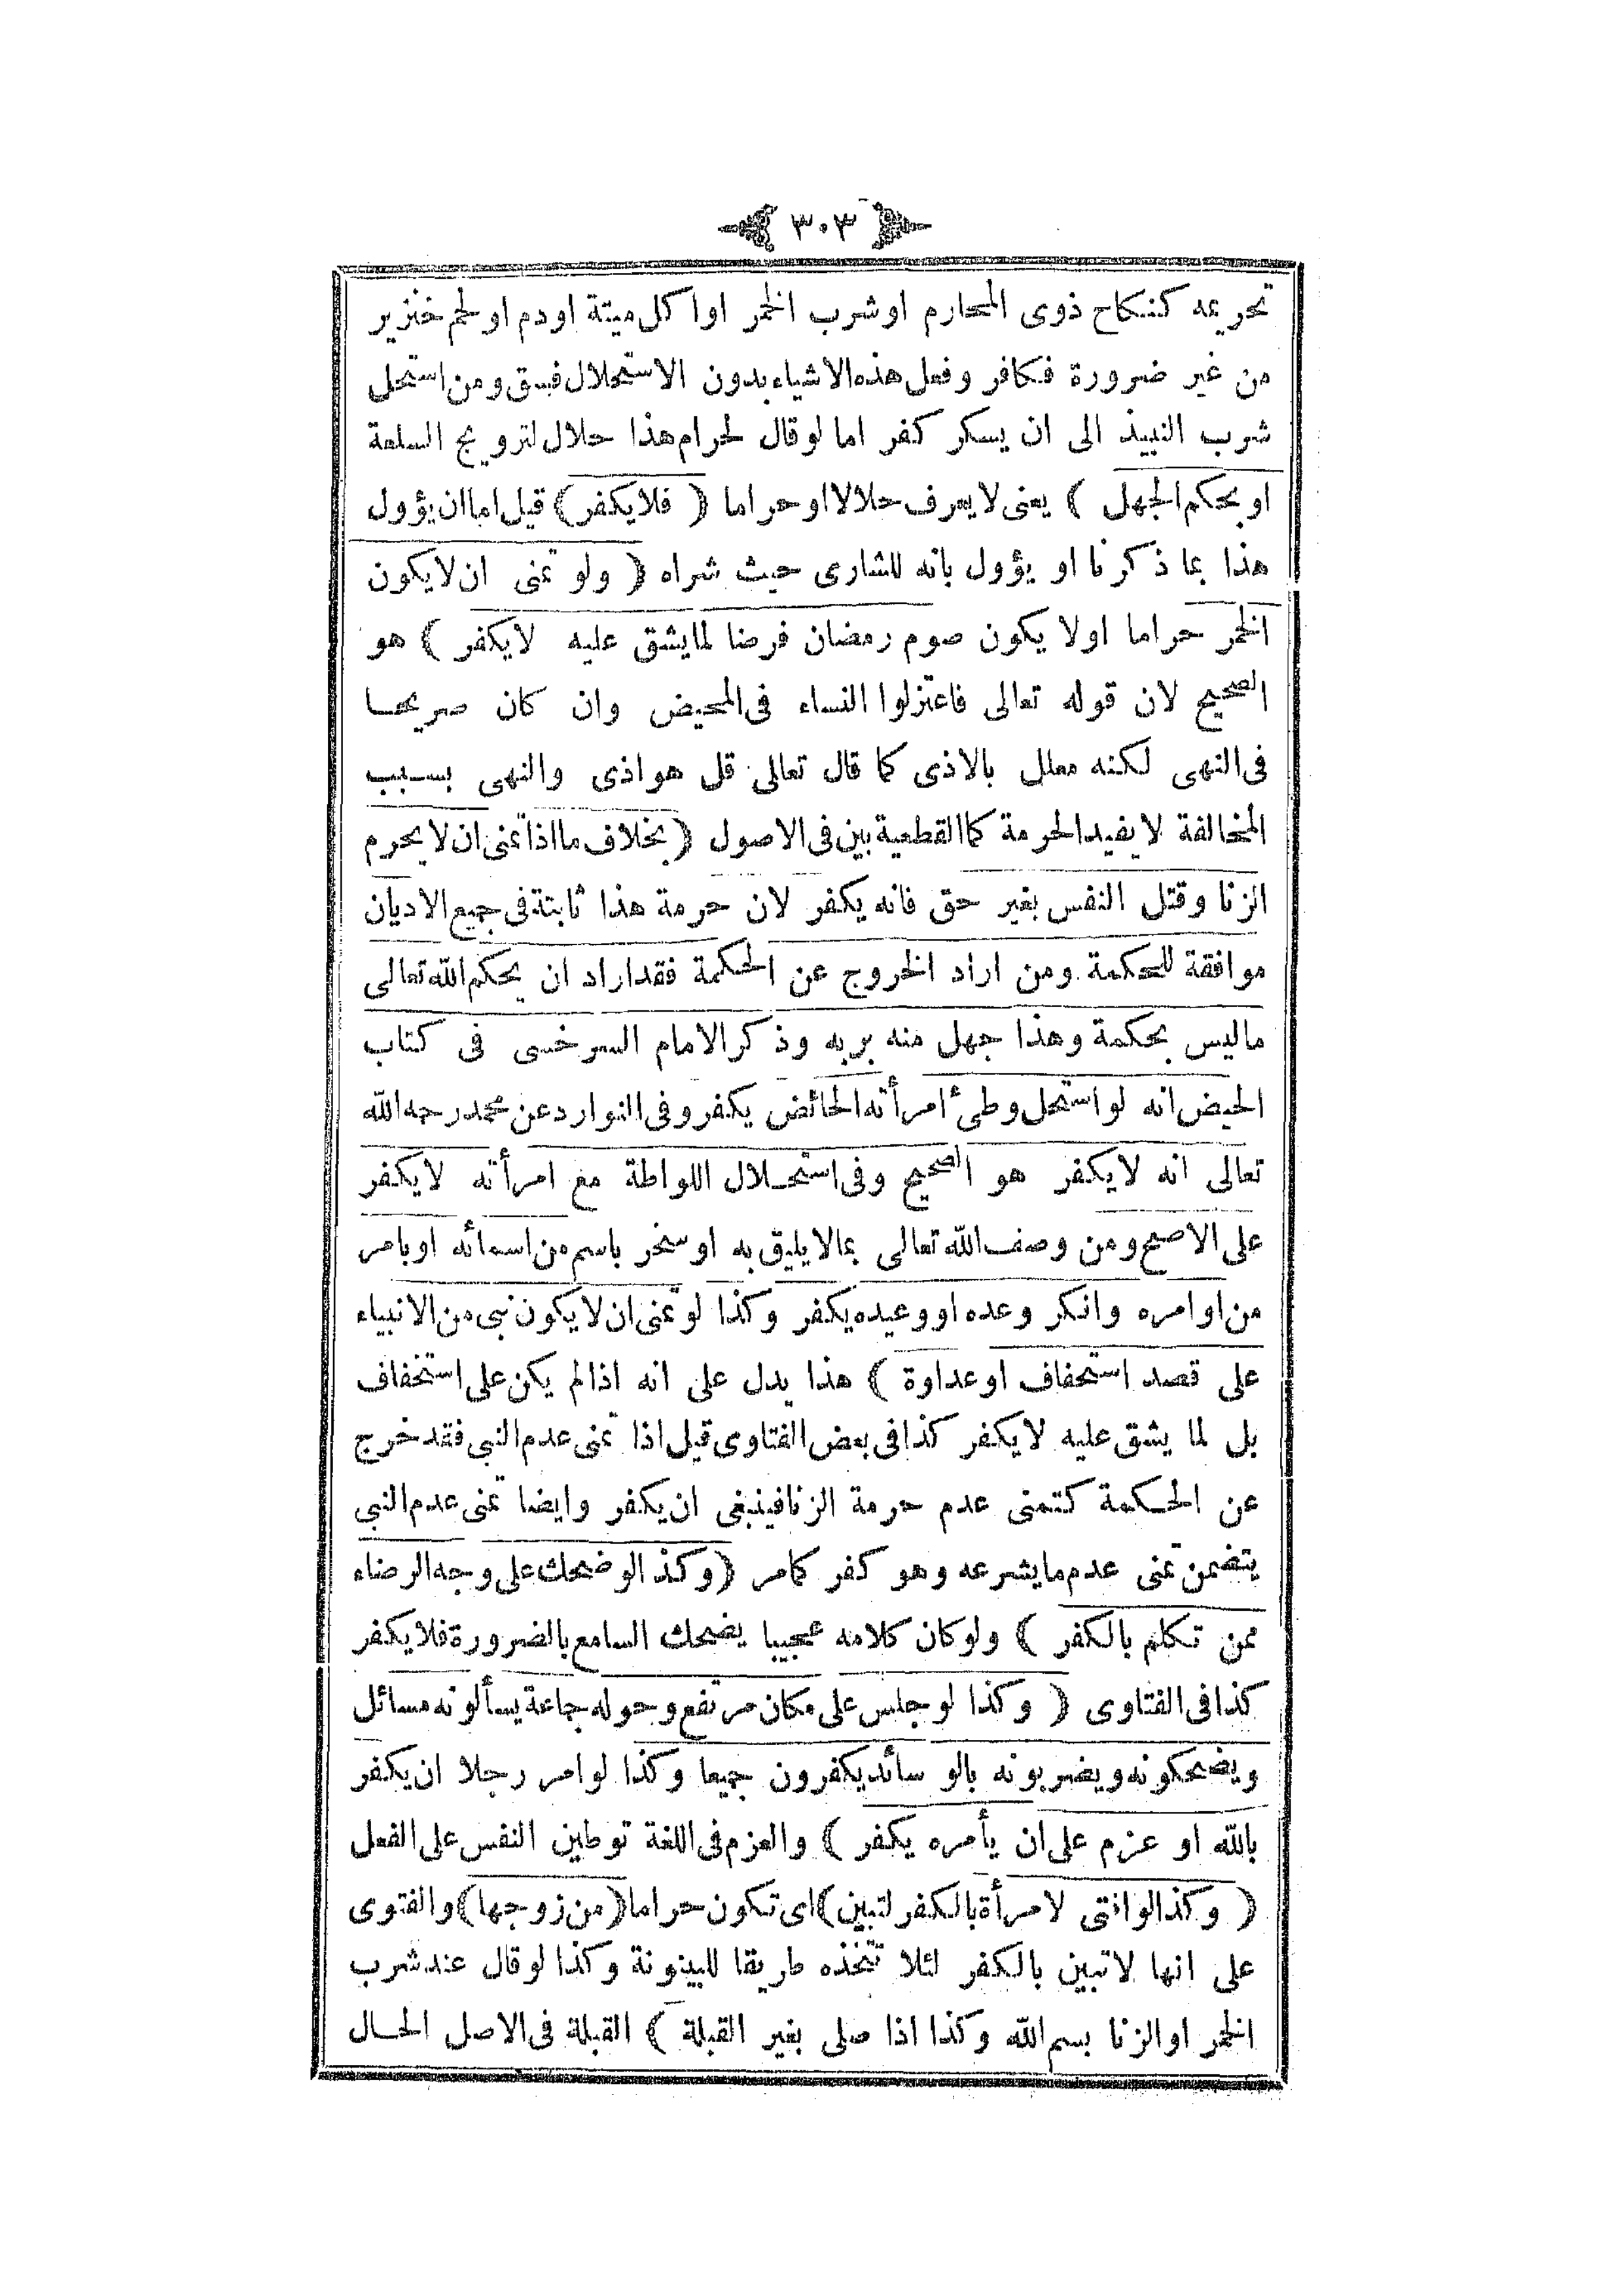 ٣٠٣
تحريمه كنكاح ذوى المحارم او شرب الخمر او اكل ميتة او دم او لحم خنزير
من غير ضرورة فكافر وفعل هذه الاشياء بدون الاستحلال فسق ومن استحل
شرب النبيذ الى ان يسكر كفر اما لو قال لحرام هذا حلال لترويج السلعة
او بحكم الجهل ) يعنى لا يعرف حلالا او حراما ( فلا يكفر ) قيل اما ان يؤول
هذا بما ذكرنا او يؤول بانه للشارى حيث شراه ( ولو تمنى ان لا يكون
الخمر حراما اولا يكون صوم رمضان فرضا لما يشق عليه لا يكفر ) هو
الصحيح لان قوله تعالى فاعتزلوا النساء فى المحيض وان كان صريحا
فى النهى لكنه معلل بالاذى كما قال تعالى قل هو اذى والنهى بسبب
المخالفة لا يفيد الحرمة كما القطعية بين فى الاصول ( بخلاف ما اذا تمنى ان لا يحرم
الزنا وقتل النفس بغير حق فانه يكفر لان حرمة هذا ثابتة فى جميع الاديان
موافقة للحكمة ومن اراد الخروج عن الحكمة فقد اراد ان يحكم الله تعالى
ما ليس بحكمة وهذا جهل منه بربه وذكر الامام السرخسى فى كتاب
الحيض انه لو استحل وطئ امرأته الحائض يكفر وفى النوادر عن محمد رحمه الله
تعالى انه لا يكفر هو الصحيح وفى استحلال اللواطة مع امرأته لا يكفر
على الاصح ومن وصف الله تعالى بما لا يليق به او سخر باسم من اسمائه او بامر
من اوامره وانكر وعده او وعيده يكفر وكذا لو تمنى ان لا يكون نبى من الانبياء
على قصد استحفاف او عداوة ) هذا يدل على انه اذا لم يكن على استخفاف
بل لما يشق عليه لا يكفر كذا فى بعض الفتاوى قيل اذا تمنى عدم النبى فقد خرج
عن الحكمة كتمنى عدم حرمة الزنا فينبغى ان يكفر وايضا تمنى عدم النبى
يتضمن تمنى عدم ما يشرعه وهو كفر كما مر ( وكذا لو ضحك على وجه الرضاء
ممن تكلم بالكفر ) ولو كان كلامه عجيبا يضحك السامع بالضرورة فلا يكفر
كذا فى الفتاوى ( وكذا لو جلس على مكان مرتفع وحوله جماعة يسألونه مسائل
ويضحكونه ويضربونه بالوسائد يكفرون جميعا وكذا لو امر رجلا ان يكفر
بالله او عزم على ان يأمره يكفر ) والعزم فى اللغة توطين النفس على الفعل
( وكذا لو افتى لامرأة بالكفر لتبين ) اى تكون حراما ( من زوجها ) والفتوى
على انها لا تبين بالكفر لئلا تتخذه طريقا للبينونة وكذا لو قال عند شرب
الخمر او الزنا بسم الله وكذا اذا صلى بغير القبلة ) القبلة فى الاصل الحال